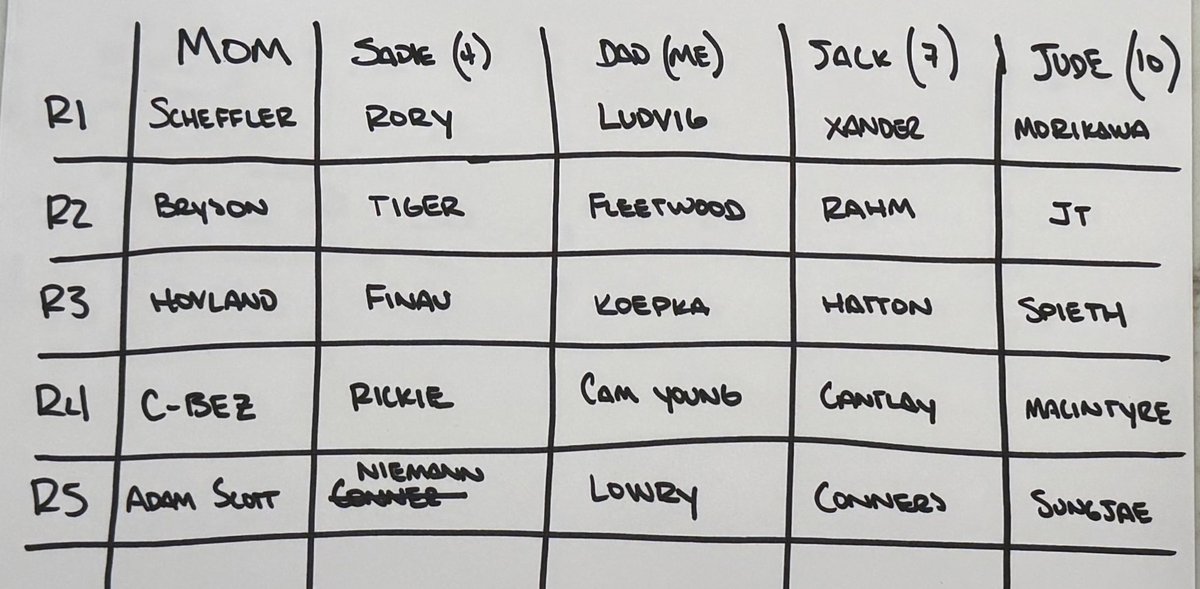 MOM SADIE (4) DAD (ME) JACK (7) JUDE (10)
R1 SCHEFFLER RORY LUDVIG XANDER MORIKAWA
R2 BRYSON TIGER FLEETWOOD RAHM JT
R3 HOVLAND FINAU KOEPKA HATTON SPIETH
R4 C-BEZ RICKIE CAM YOUNG CANTLAY MACINTYRE
NIEMANN
R5 ADAM SCOTT CONNER LOWRY CONNERS SUNGJAE